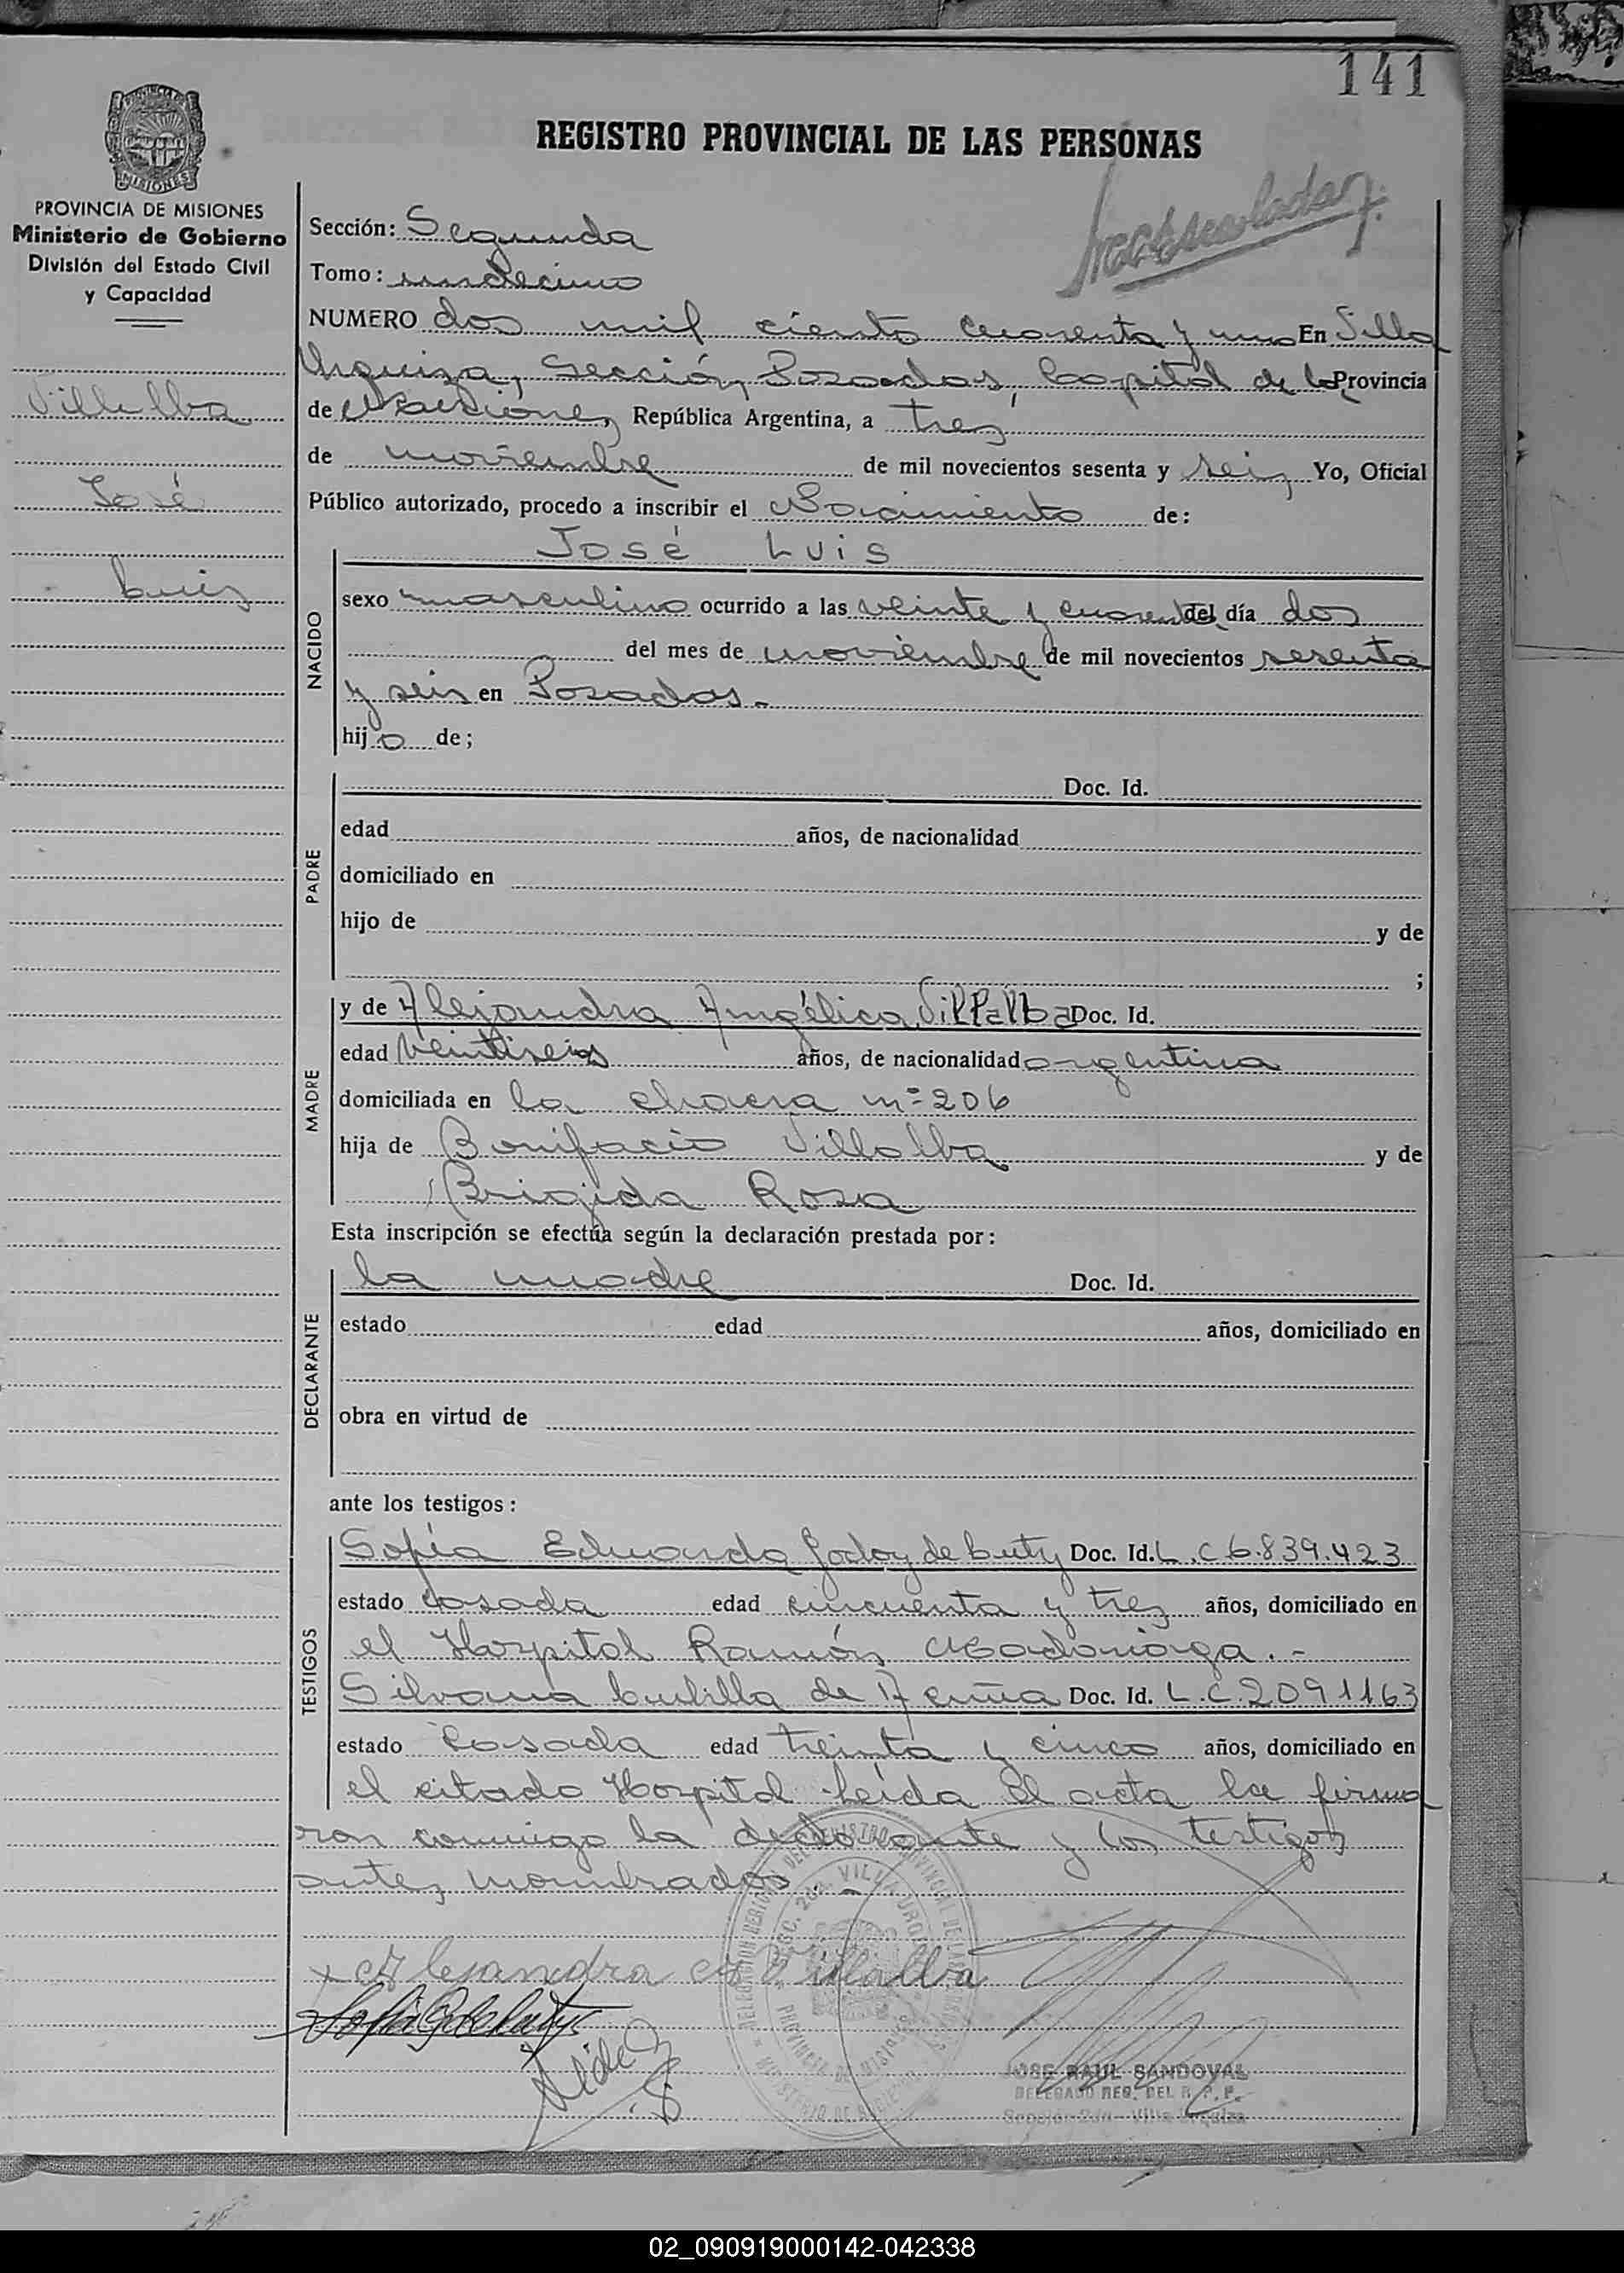 141
REGISTRO PROVINCIAL DE LAS PERSONAS
PROVINCIA DE MISIONES
Ministerio de Gobierno
División del Estado Civil
y Capacidad
Villalba
José
Luis
Sección: Segunda
Tomo: undecimo
NUMERO dos mil ciento cuarenta y uno En Villa
Urquiza, Sección Posadas, Capital de la Provincia
de Misiones, República Argentina, a tres
de noviembre de mil novecientos sesenta y seis Yo, Oficial
Público autorizado, procedo a inscribir el Nacimiento de:
José Luis
NACIDO
sexo masculino ocurrido a las veinte y cuarenta del día dos
del mes de noviembre de mil novecientos sesenta
y seis en Posadas.-
hijo de;
PADRE
Doc. Id.
edad años, de nacionalidad
domiciliado en
hijo de y de
;
MADRE
y de Alejandra Angélica Villalba Doc. Id.
edad veintiseis años, de nacionalidad argentina
domiciliada en la chacra nº 206
hija de Bonifacio Villalba y de
Brigida Rosa
Esta inscripción se efectúa según la declaración prestada por:
DECLARANTE
la madre Doc. Id.
estado edad años, domiciliado en
obra en virtud de
ante los testigos:
TESTIGOS
Sofía Eduarda Godoy de Doc. Id. L.C 6.839.423
estado casada edad cincuenta y tres años, domiciliado en
el Hospital Ramón Madariaga.-
Silvana de Doc. Id. L.C. 2091163
estado Casada edad treinta y cinco años, domiciliado en
el citado Hospital leída El acta la firma
ron conmigo la declarante y los testigos
antes nombrados
x Alejandra A Villalba
JOSE RAUL SANDOVAL
DELEGADO REG. DEL R. P. P.
Sección 2da - Villa Urquiza
02_090919000142-042338